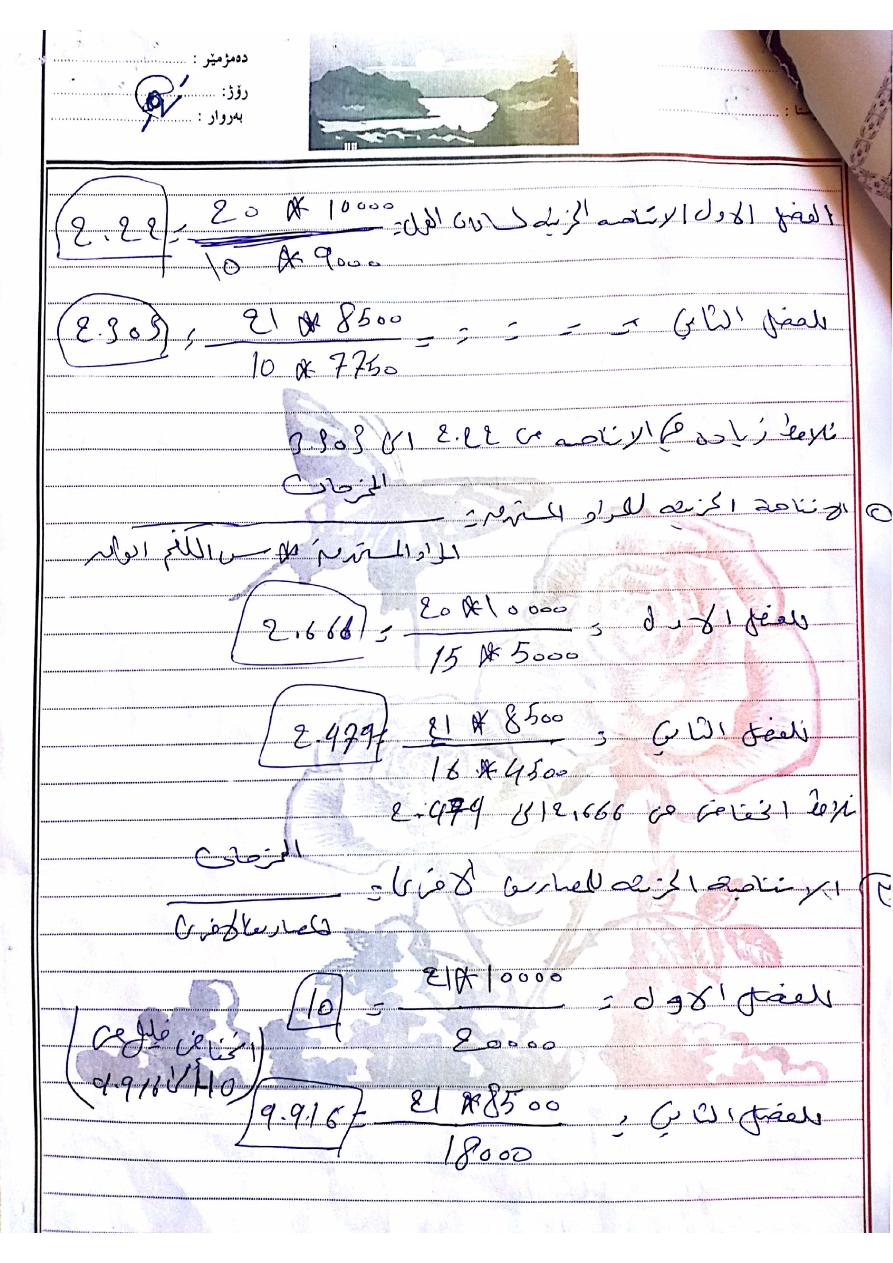 دەمژمێر :
رۆژ:
بەروار :
الفصل الاول الإنتاجية الجزئية لساعات العمل = 20 * 10000 / 10 * 9000 = 2.22
للفصل الثاني = = = = = 21 * 8500 / 10 * 7750 = 2.303
نلاحظ زيادة في الانتاجية من 2.22 الى 2.303
الانتاجية الجزئية للمواد المستخدمة = المخرجات
المواد المستخدمة
للفصل الاول = 20 * 10000 / 15 * 5000 = 2.666
للفصل الثاني = 21 * 8500 / 16 * 4500 = 2.479
نلاحظ انخفاض من 2.666 الى 2.479
الانتاجية الجزئية للمصاريف الاخرى = المخرجات
المصاريف الاخرى
للفصل الاول = 21 * 10000 / 20000 = 10
(انخفاض قليل من 10 الى 9.916)
للفصل الثاني = 21 * 8500 / 18000 = 9.916